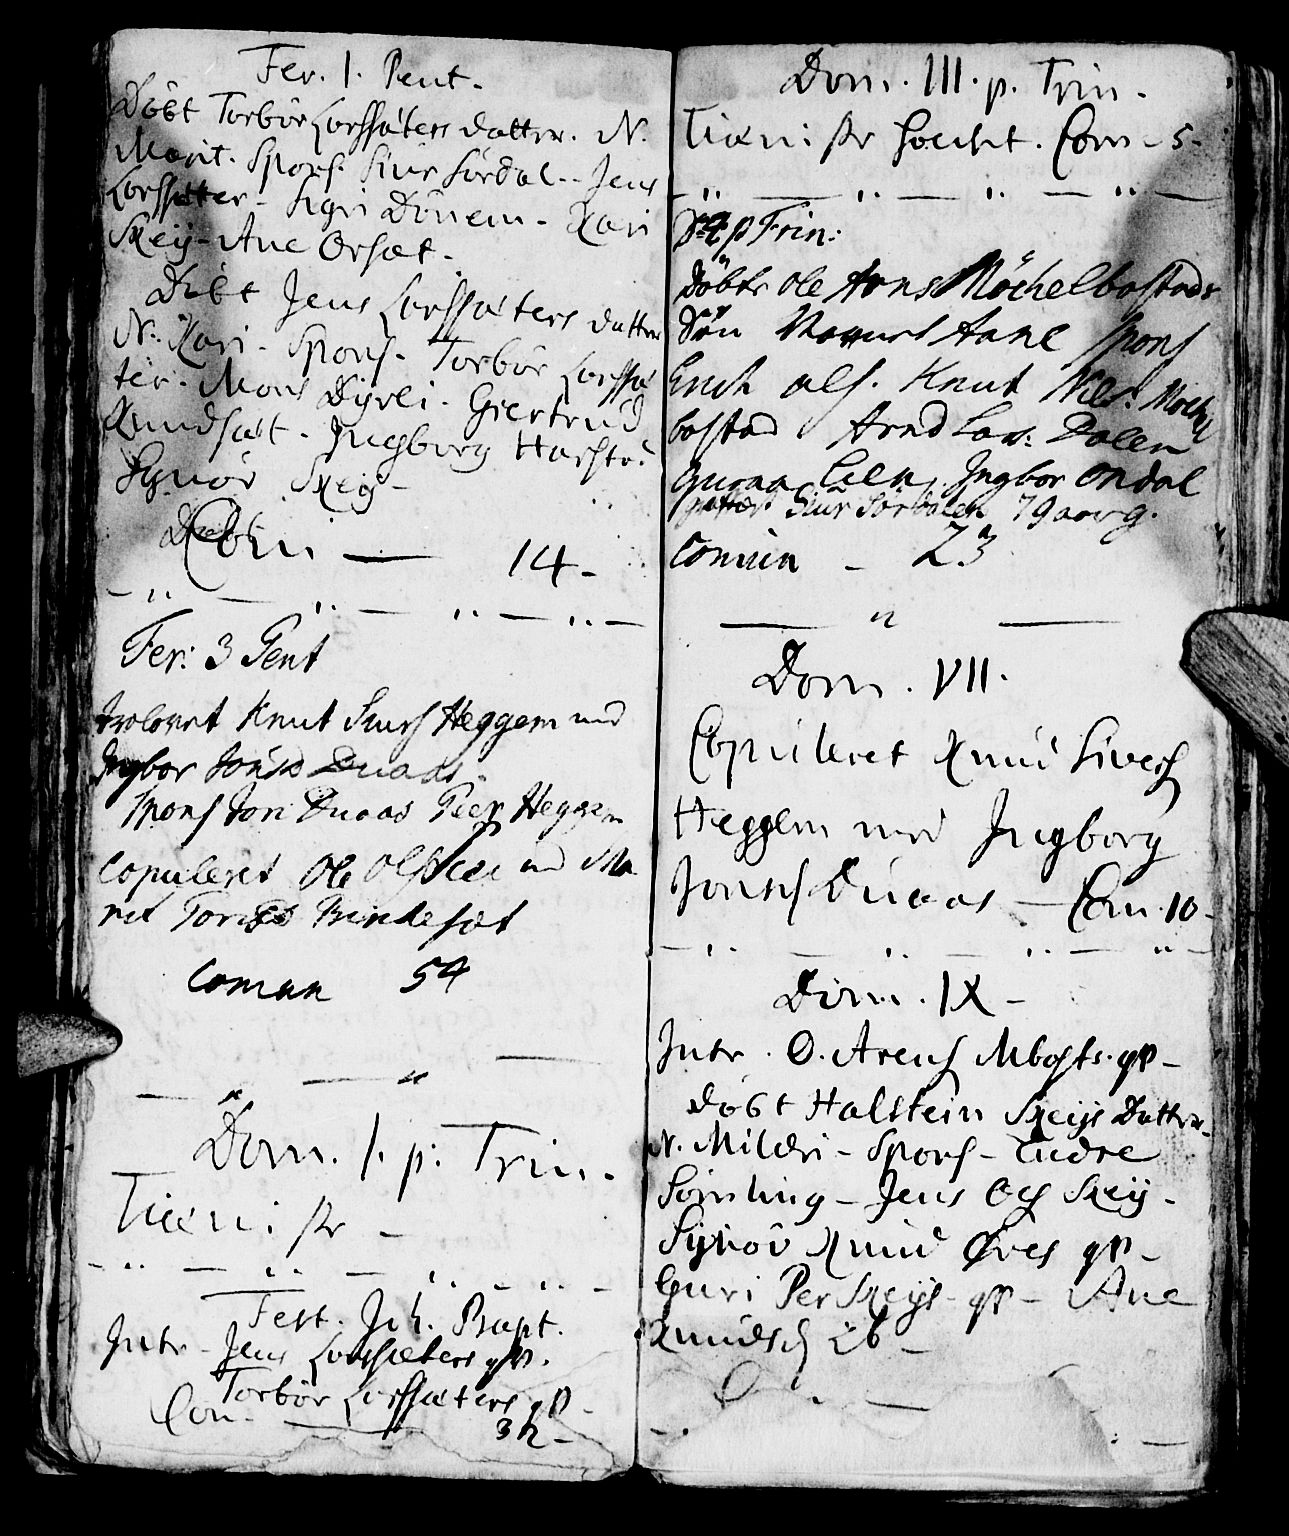 Fer. 1. Pent.
Döbt Torbör Lorssæters datter. N.
Marit. Spons. Siur Sördal - Jens
Lorssætter - Sigri Dönem - Kari
Skeij - Ane Orsæt.
Döbt Jens Lorssæters datter
N. Kari - Spons. Torbör Lorssæ
ter. Mons Dijrli. Giertrud
Kundsæt. Ingborg Harstö.
Sÿnöv Skeij -
Com — 14 -
Fer: 3 Pent
Trolovet Knut Siurs Heggem med
Ingbor Jonsd Duaas.
Spons Jon Duaas Peer Heggem
copuleret Ole Ols med Ma
rit Rindesæt
Coman 54
Dom. 1. p. Trin.
Tieniste -
Fest. Joh. Bapt.
Intr - Jens Lorssæters qv.
Torbör Lorssæters qv -
Con. — 32 -
Dom. III. p. Trin.
Tieniste holdt. Com - 5 -
D 4 p Trin:
döbte Ole Arns Möchelbostads
Sön Aane Spons
Erich ols. Knut Nils: Moche
bostad Arnd Lar: Dalen
Guraa Ingbor Ondal
Siur Sördalen 79 aar g.
Comun - 23
Dom. VII.
Copuleret Knud Sivers
Heggem med Ingborg
Jonsd Duaas - Com. 10 -
Dom. IX -
Intr. O. Arens Mbosts. qv -
döbt Halstein Skeijs Datter.
N. Mildri - Spons - Endre
Sömling - Jens Ols Skeij -
Sijnöv Knud Øves qv -
Guri Per Skeijs qv - Ane
Knudsd ib -